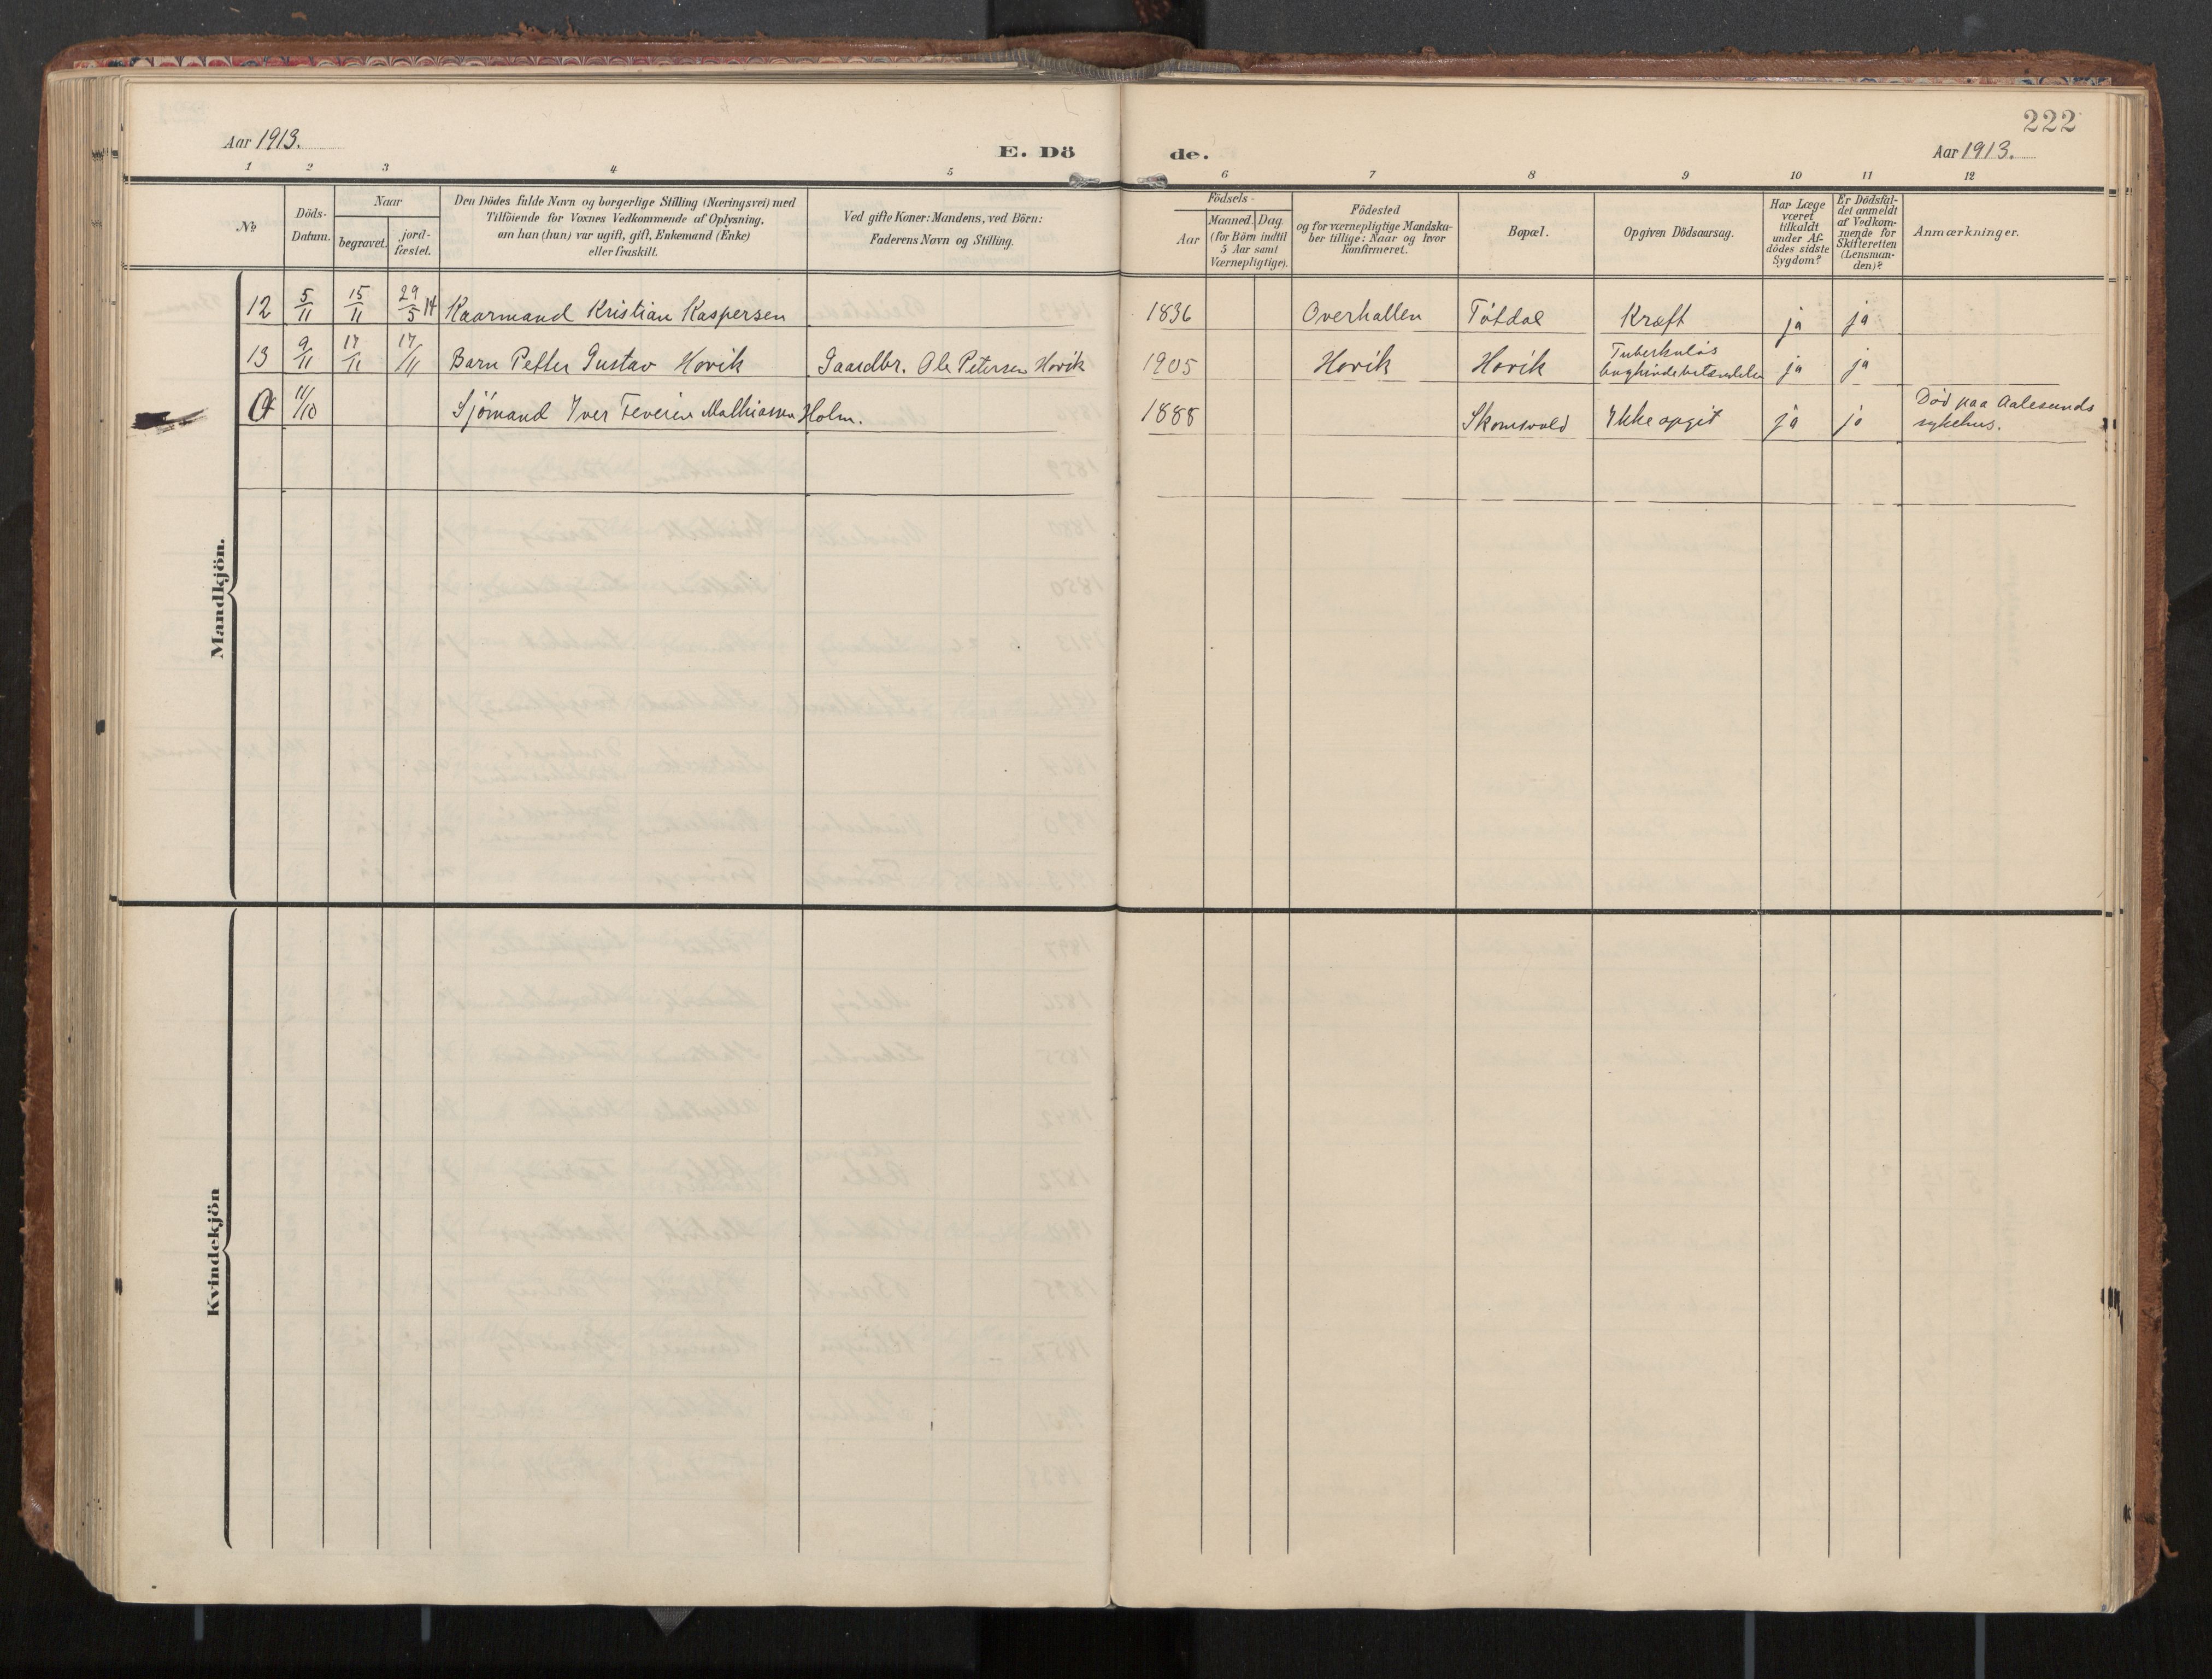 222
Aar 1913.
E. Dö de.
Aar 1913.
1 2 3 4 5 6 7 8 9 10 11 12
No
Döds-
Datum.
Naar
begravet.
jord-
fæstet.
Den Dödes fulde Navn og borgerlige Stilling (Næringsvei) med
Tilföiende for Voxnes Vedkommende af Oplysning,
om han (hun) var ugift, gift, Enkemand (Enke)
eller fraskilt.
Ved gifte Koner: Mandens, ved Börn:
Faderens Navn og Stilling.
Födsels-
Aar
Maaned. Dag.
(for Börn indtil
5 Aar samt
Værnepligtige).
Födested
og for værnepligtige Mandska-
ber tillige: Naar og hvor
konfirmeret.
Bopæl.
Opgiven Dödsaarsag.
Har Læge
været
tilkaldt
under Af-
dödes sidste
Sygdom?
Er Dödsfal-
det anmeldt
af Vedkom-
mende for
Skifteretten
(Lensman-
den)?
Anmærkninger.
Mandkjön.
12 5/11 15/11 29/5 14 Kaarmand Kristian Kaspersen 1836 Overhallen Tötdal Kræft ja ja
13 9/11 17/11 17/11 Barn Petter Gustav Hovik Gaardbr. Ole Petersen Hovik 1905 Hovik Hovik Tuberkuløs
ja ja
11/10 Sjömand Iver Mathiassen Holm. 1888 Skomsvold Ikke opgit ja ja Död paa Aalesunds
sykehus.
Kvindekjön